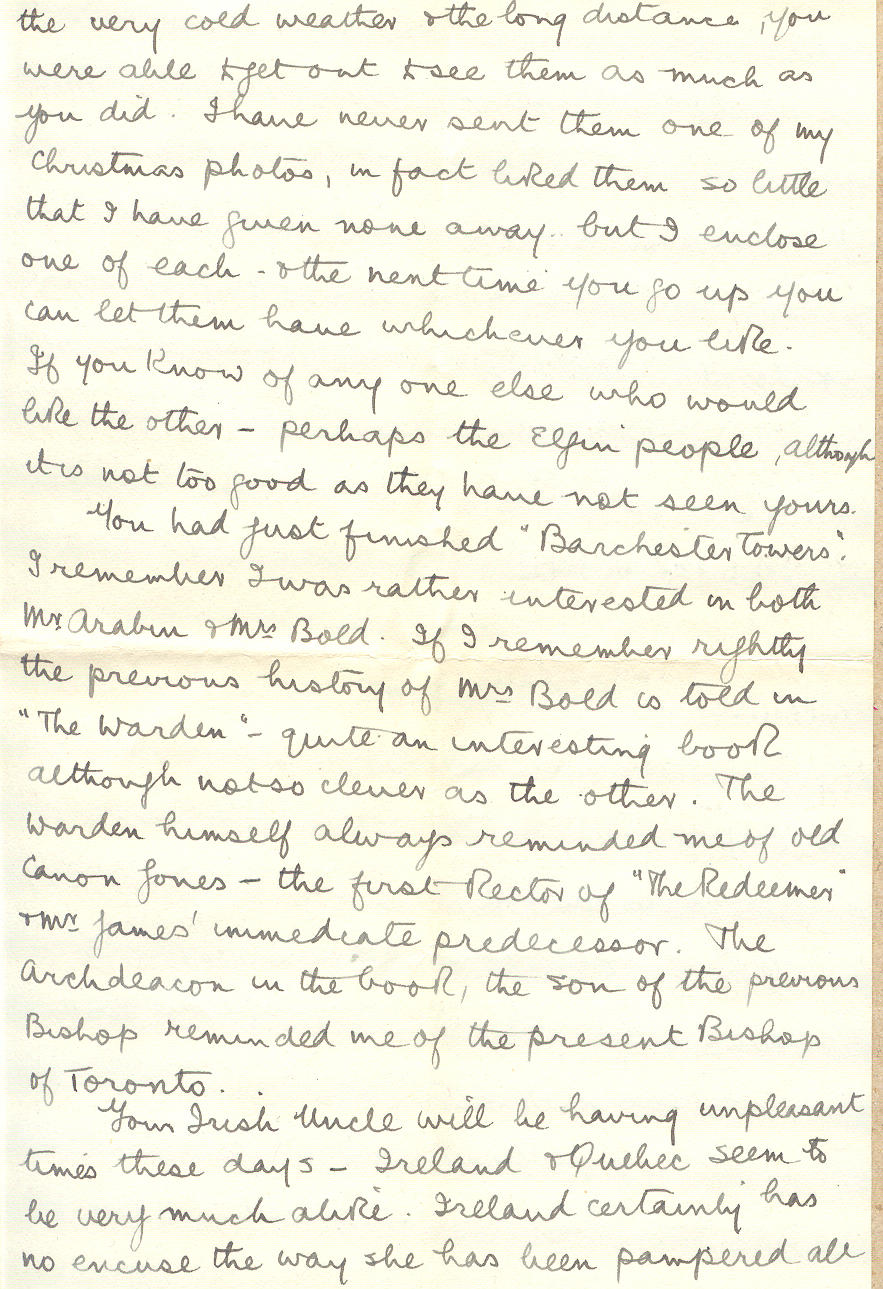 the very cold weather & the long distance, you
were able to get out to see them as much as
you did. I have never sent them one of my
Christmas photos, in fact liked them so little
that I have given none away.. but I enclose
one of each - & the next time you go up you
can let them have whichever you like.
If you know of any one else who would
like the other - perhaps the Elgin people, although
it is not too good as they have not seen yours.
You had just finished "Barchester Towers".
I remember I was rather interested in both
Mr. Arabin & Mrs Bold. If I remember rightly
the previous history of Mrs Bold is told in
"The Warden" - quite an interesting book
although not so clever as the other. The
Warden himself always reminded me of old
Canon Jones - the first Rector of "The Redeemer"
& Mr James' immediate predecessor. The
Archdeacon in the book, the son of the previous
Bishop reminded me of the present Bishop
of Toronto.
Your Irish Uncle will be having unpleasant
times these days - Ireland & Quebec seem to
be very much alike. Ireland certainly has
no excuse the way she has been pampered all